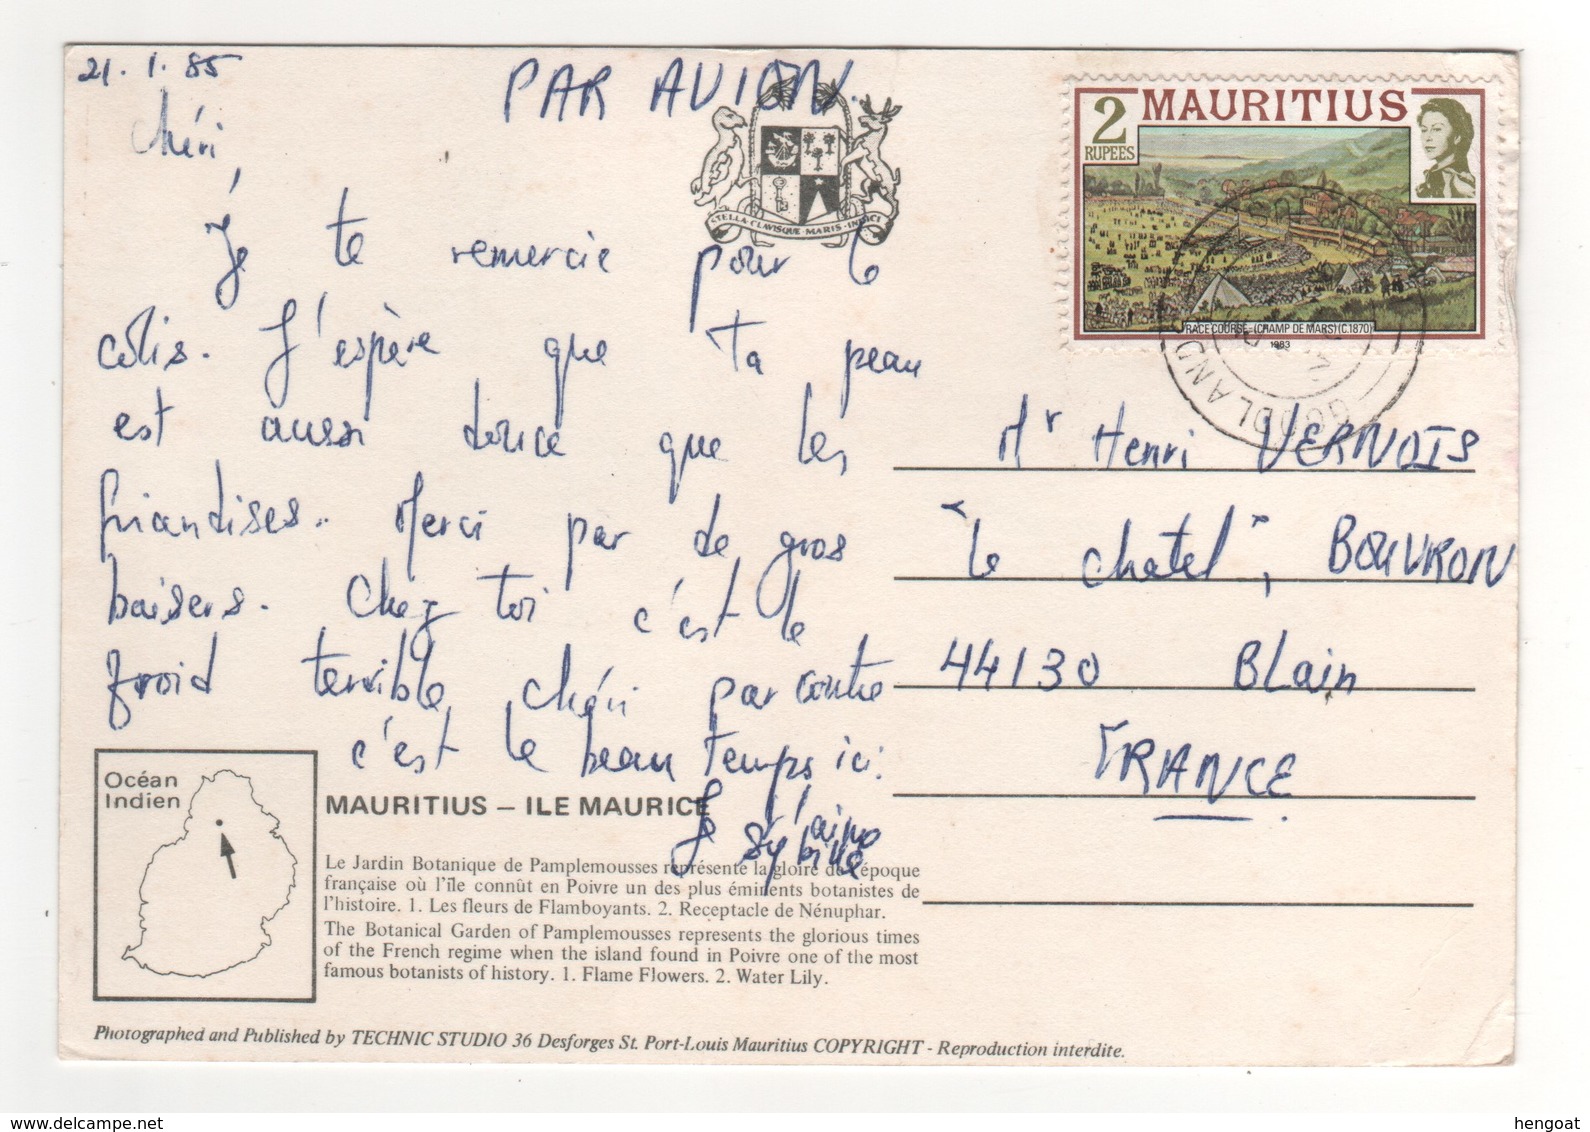 21.1.85
PAR AVION.
Chéri,
Je te remercie pour le
colis. J'espère que ta peau
est aussi douce que les
friandises.. Merci par de gros
baisers. Chez toi c'est le
froid terrible chéri par contre
c'est le beau temps ici.
Je t'aime
Sybille
STELLA·CLAVISQUE·MARIS·INDICI
2 MAURITIUS
RUPEES
RACE COURSE-(CHAMP DE MARS)(C.1870)
1983
GOODLANDS
Mr Henri VERNOIS
"le chatel", BOUVRON
44130 Blain
FRANCE
Océan
Indien
MAURITIUS – ILE MAURICE
Le Jardin Botanique de Pamplemousses représente la gloire de l'époque
française où l'île connût en Poivre un des plus éminents botanistes de
l'histoire. 1. Les fleurs de Flamboyants. 2. Receptacle de Nénuphar.
The Botanical Garden of Pamplemousses represents the glorious times
of the French regime when the island found in Poivre one of the most
famous botanists of history. 1. Flame Flowers. 2. Water Lily.
Photographed and Published by TECHNIC STUDIO 36 Desforges St. Port-Louis Mauritius COPYRIGHT - Reproduction interdite.
www.delcampe.net
hengoat